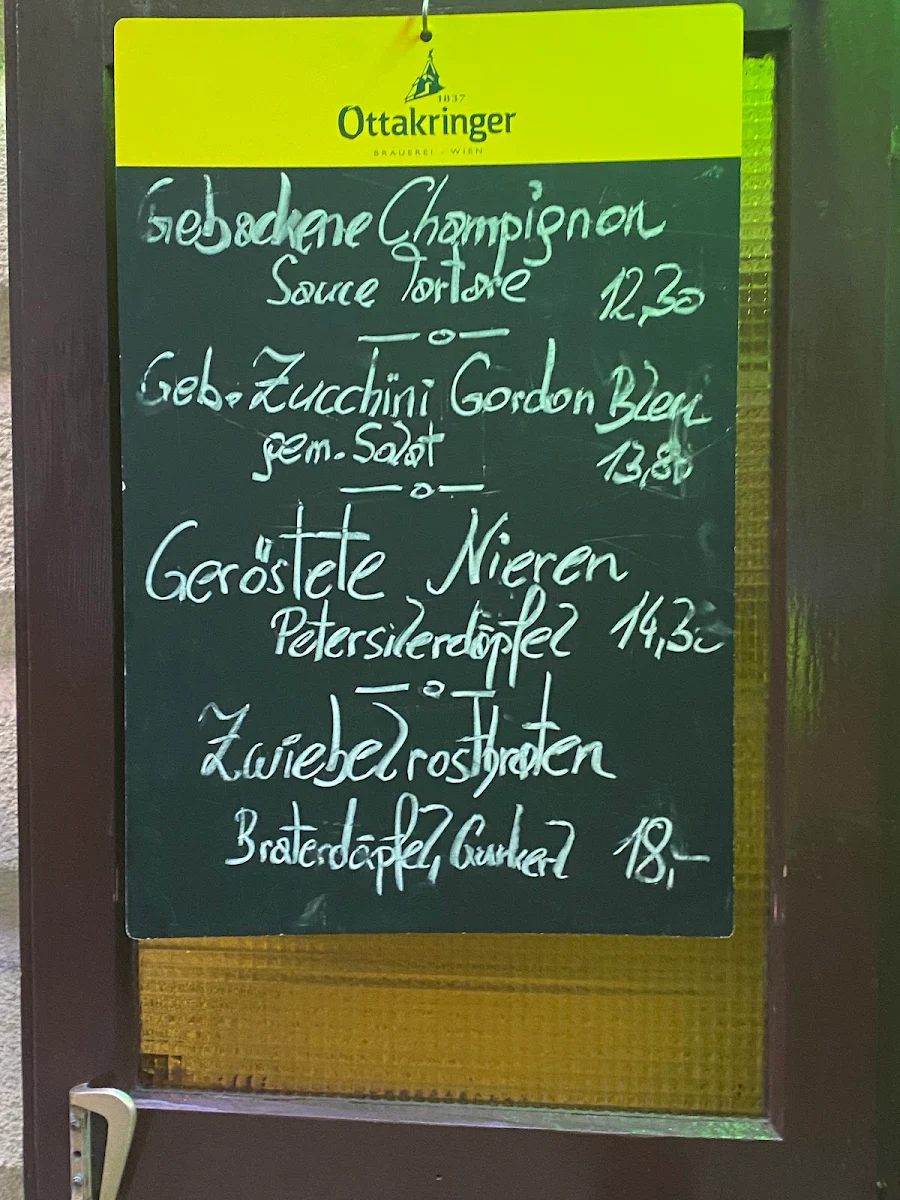 1837
Ottakringer
BRAUEREI - WIEN
Gebackene Champignon
Sauce Tartare 12,30
Geb. Zucchini Gordon Bleu
gem. Salat 13,80
Geröstete Nieren
Petersilerdäpfel 14,30
Zwiebelrostbraten
Braterdäpfel, Gurkerl 18,-